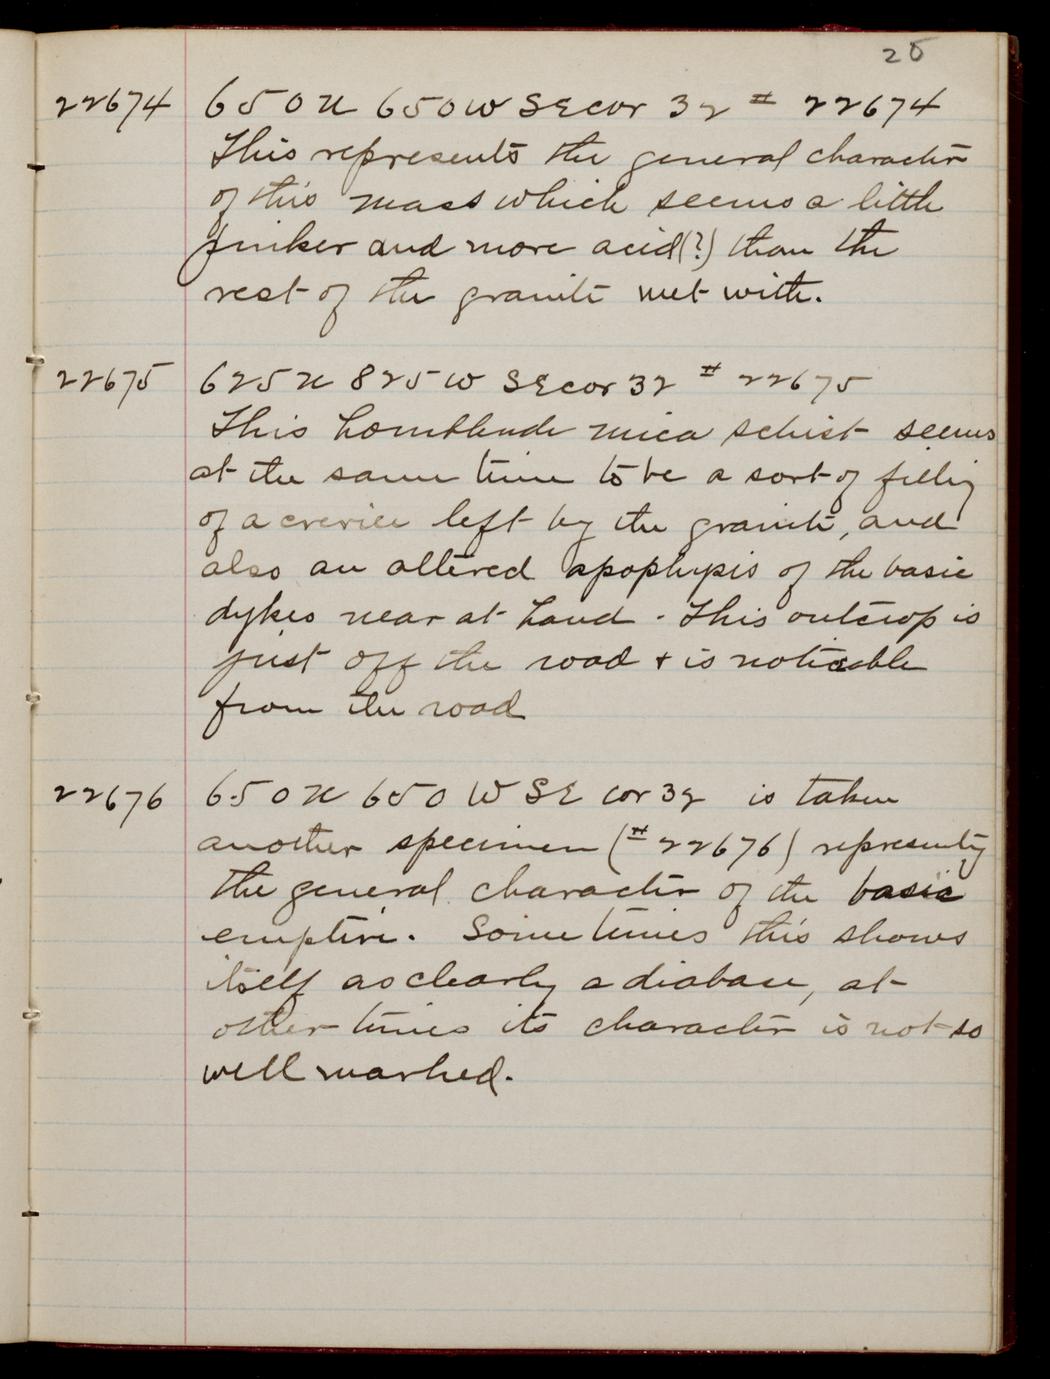 25
22674 650 N 650 W SE cor 32 # 22674
This represents the general character
of this mass which seems a little
pinker and more acid (?) than the
rest of the granite met with.
22675 625 N 825 W SE cor 32 # 22675
This hornblende mica schist seems
at the same time to be a sort of filling
of a crevice left by the granite, and
also an altered apophysis of the basic
dykes near at hand - This outcrop is
just off the road + is noticable
from the road
22676 650 N 650 W SE cor 32 is taken
another specimen (# 22676) representing
the general character of the basic
eruptive. Sometimes this shows
itself as clearly a diabase, at
other times its character is not so
well marked.